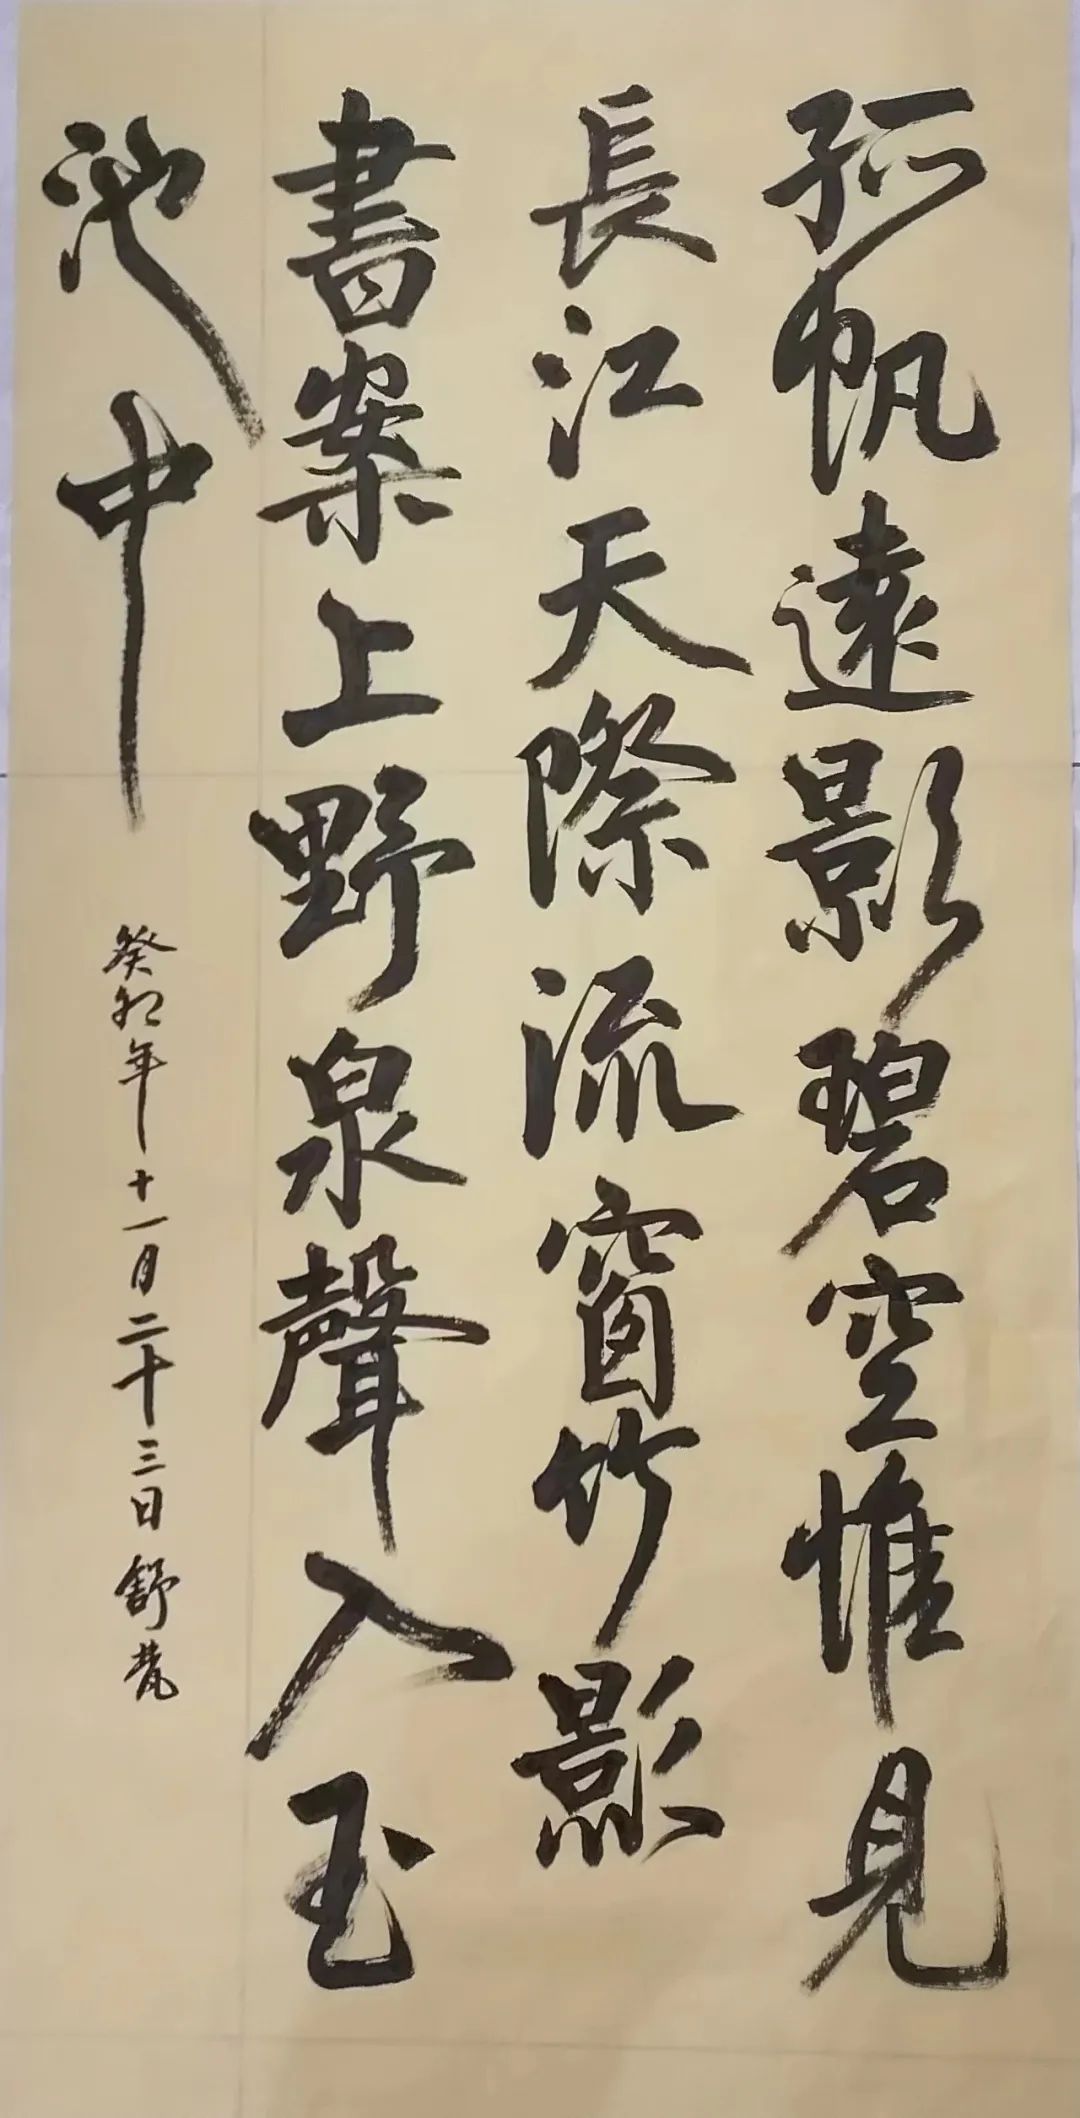 孤帆遠影碧空惟見
長江天際流窗竹影
書案上野泉聲入玉
池中
癸卯年十一月二十三日舒梵